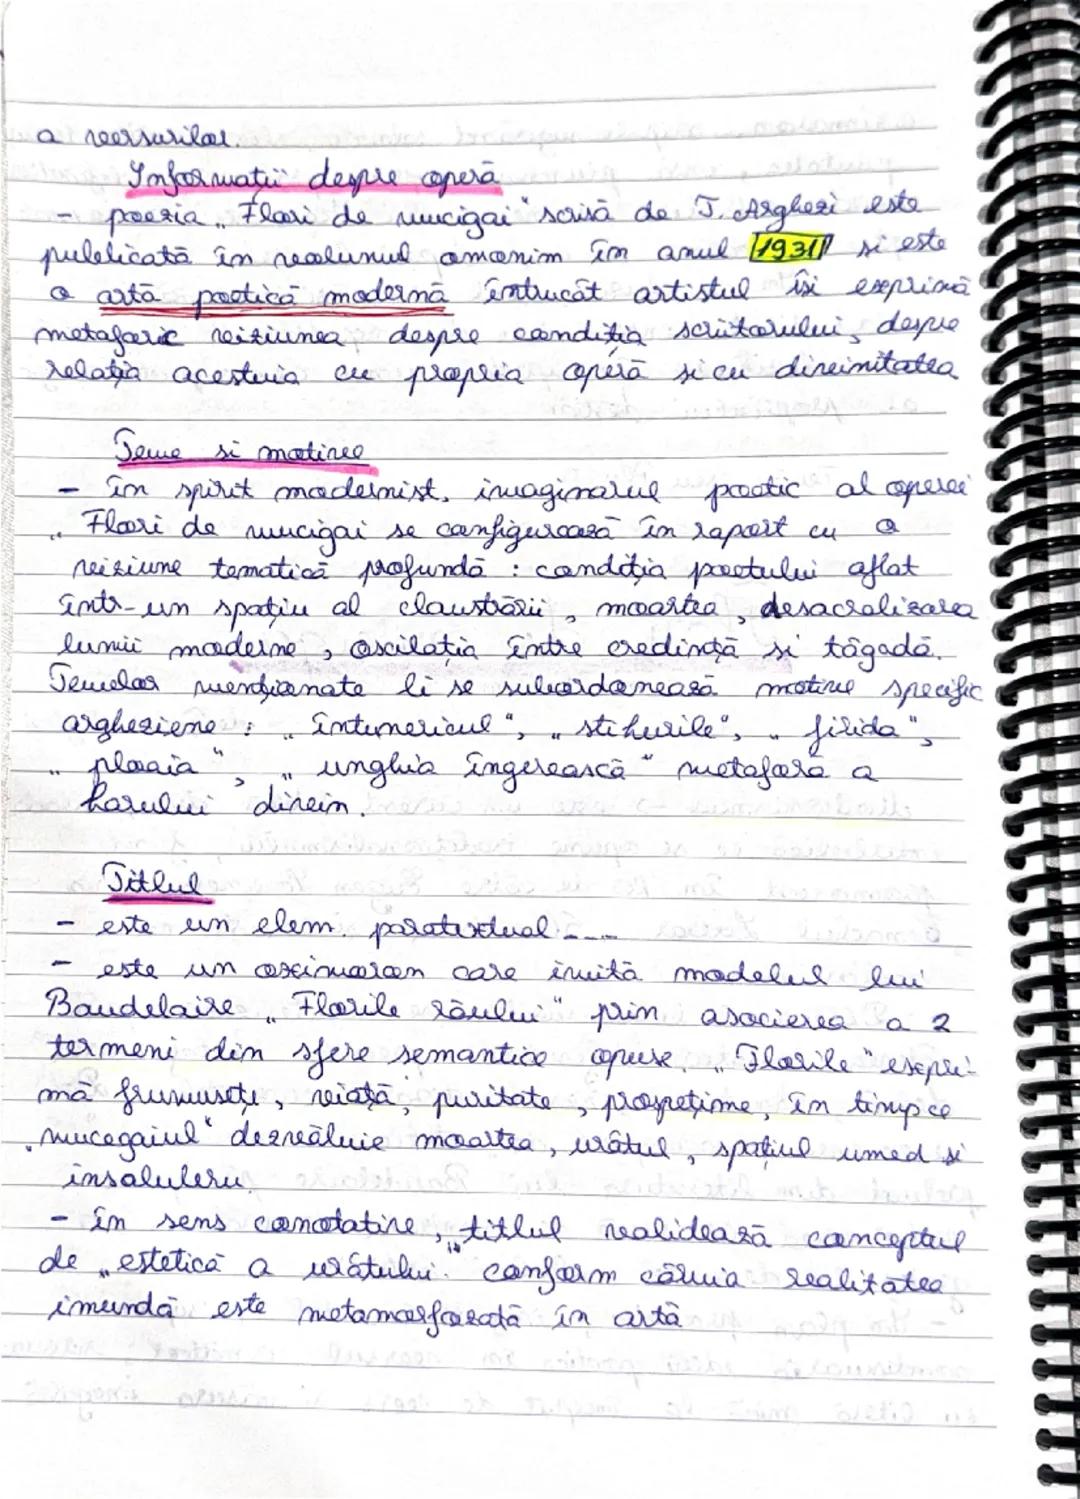 a versurilor.
Informații despre operă
- poezia „Flori de mucigai" scrisă de T. Arghezi este
publicată în volumul omonim în anul 1931 si este
o artă poetică modernă întrucât artistul își exprimă
metaforic viziunea despre condiția scriitorului, despre
relația acestuia cu propria operă si cu divinitatea
Teme si motive
- în spirit modernist, imaginarul poetic al operei
„Flori de mucigai se configurează în raport cu o
viziune tematică profundă : condiția poetului aflat
într-un spațiu al claustrării, moartea, desacralizarea
lumii moderne, oscilația între credință si tăgadă.
Temelor menționate li se subordonează motive specific
argheziene : „întunericul", „stihurile", „firida",
„ploaia", „unghia îngerească" metaforă a
harului divin.
Titlul
- este un elem. paratextual ----
- este un oximoron care imită modelul lui
Baudelaire „Florile răului" prin asocierea a 2
termeni din sfere semantice opuse. „Florile" expri-
mă frumusețe, viață, puritate, prospețime, în timp ce
„mucegaiul" dezvăluie moartea, urâtul, spațiul umed si
insalubru.
- în sens conotativ, titlul validează conceptul
de „estetică a urâtului" conform căruia realitatea
imundă este metamorfozată în artă